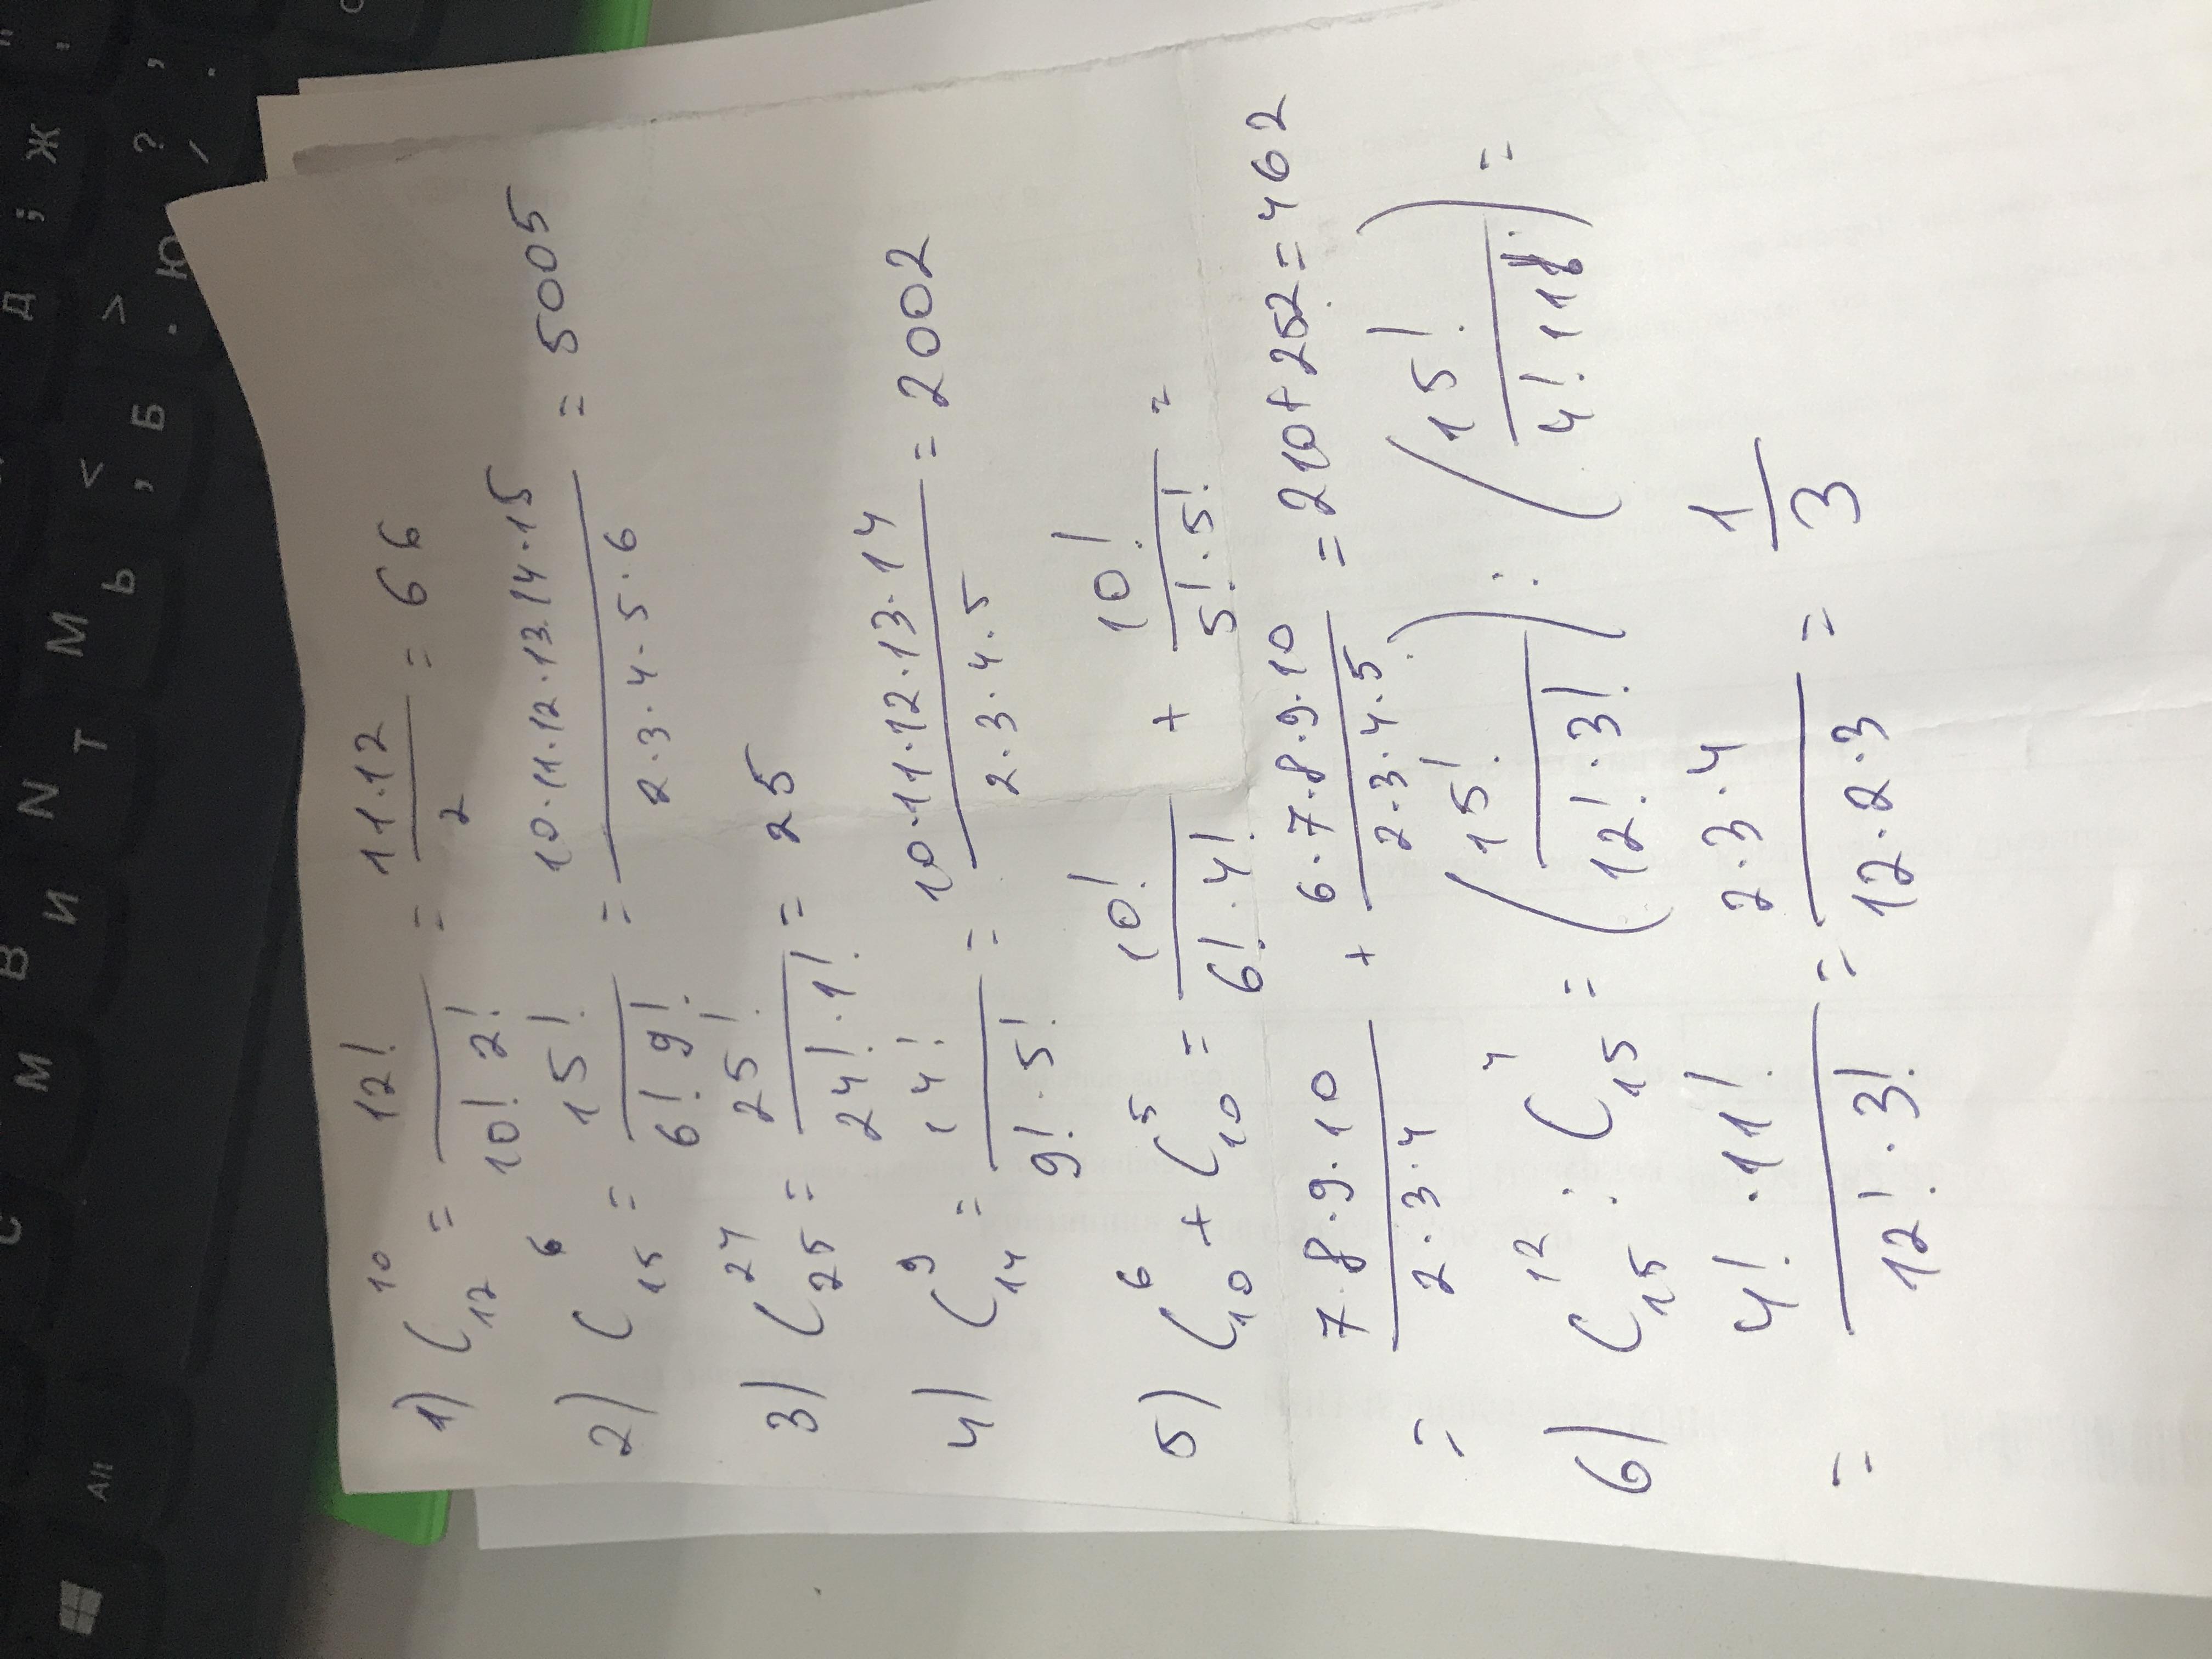 1) C₁₂¹⁰ = 12!/(10! 2!) = 11·12/2 = 66
2) C₁₅⁶ = 15!/(6! 9!) = 10·11·12·13·14·15/(2·3·4·5·6) = 5005
3) C₂₅²⁴ = 25!/(24!·1!) = 25
4) C₁₄⁹ = 14!/(9!·5!) = 10·11·12·13·14/(2·3·4·5) = 2002
5) C₁₀⁶ + C₁₀⁵ = 10!/(6!·4!) + 10!/(5!·5!) =
= 7·8·9·10/(2·3·4) + 6·7·8·9·10/(2·3·4·5) = 210+252=462
6) C₁₅¹² : C₁₅⁴ = (15!/(12!·3!)) : (15!/(4!·11!)) =
= 4!·11!/(12!·3!) = 2·3·4/(12·2·3) = 1/3
Alt
С М В И N Т М Ь < , Б > . Ю ? ,
Д ; Ж